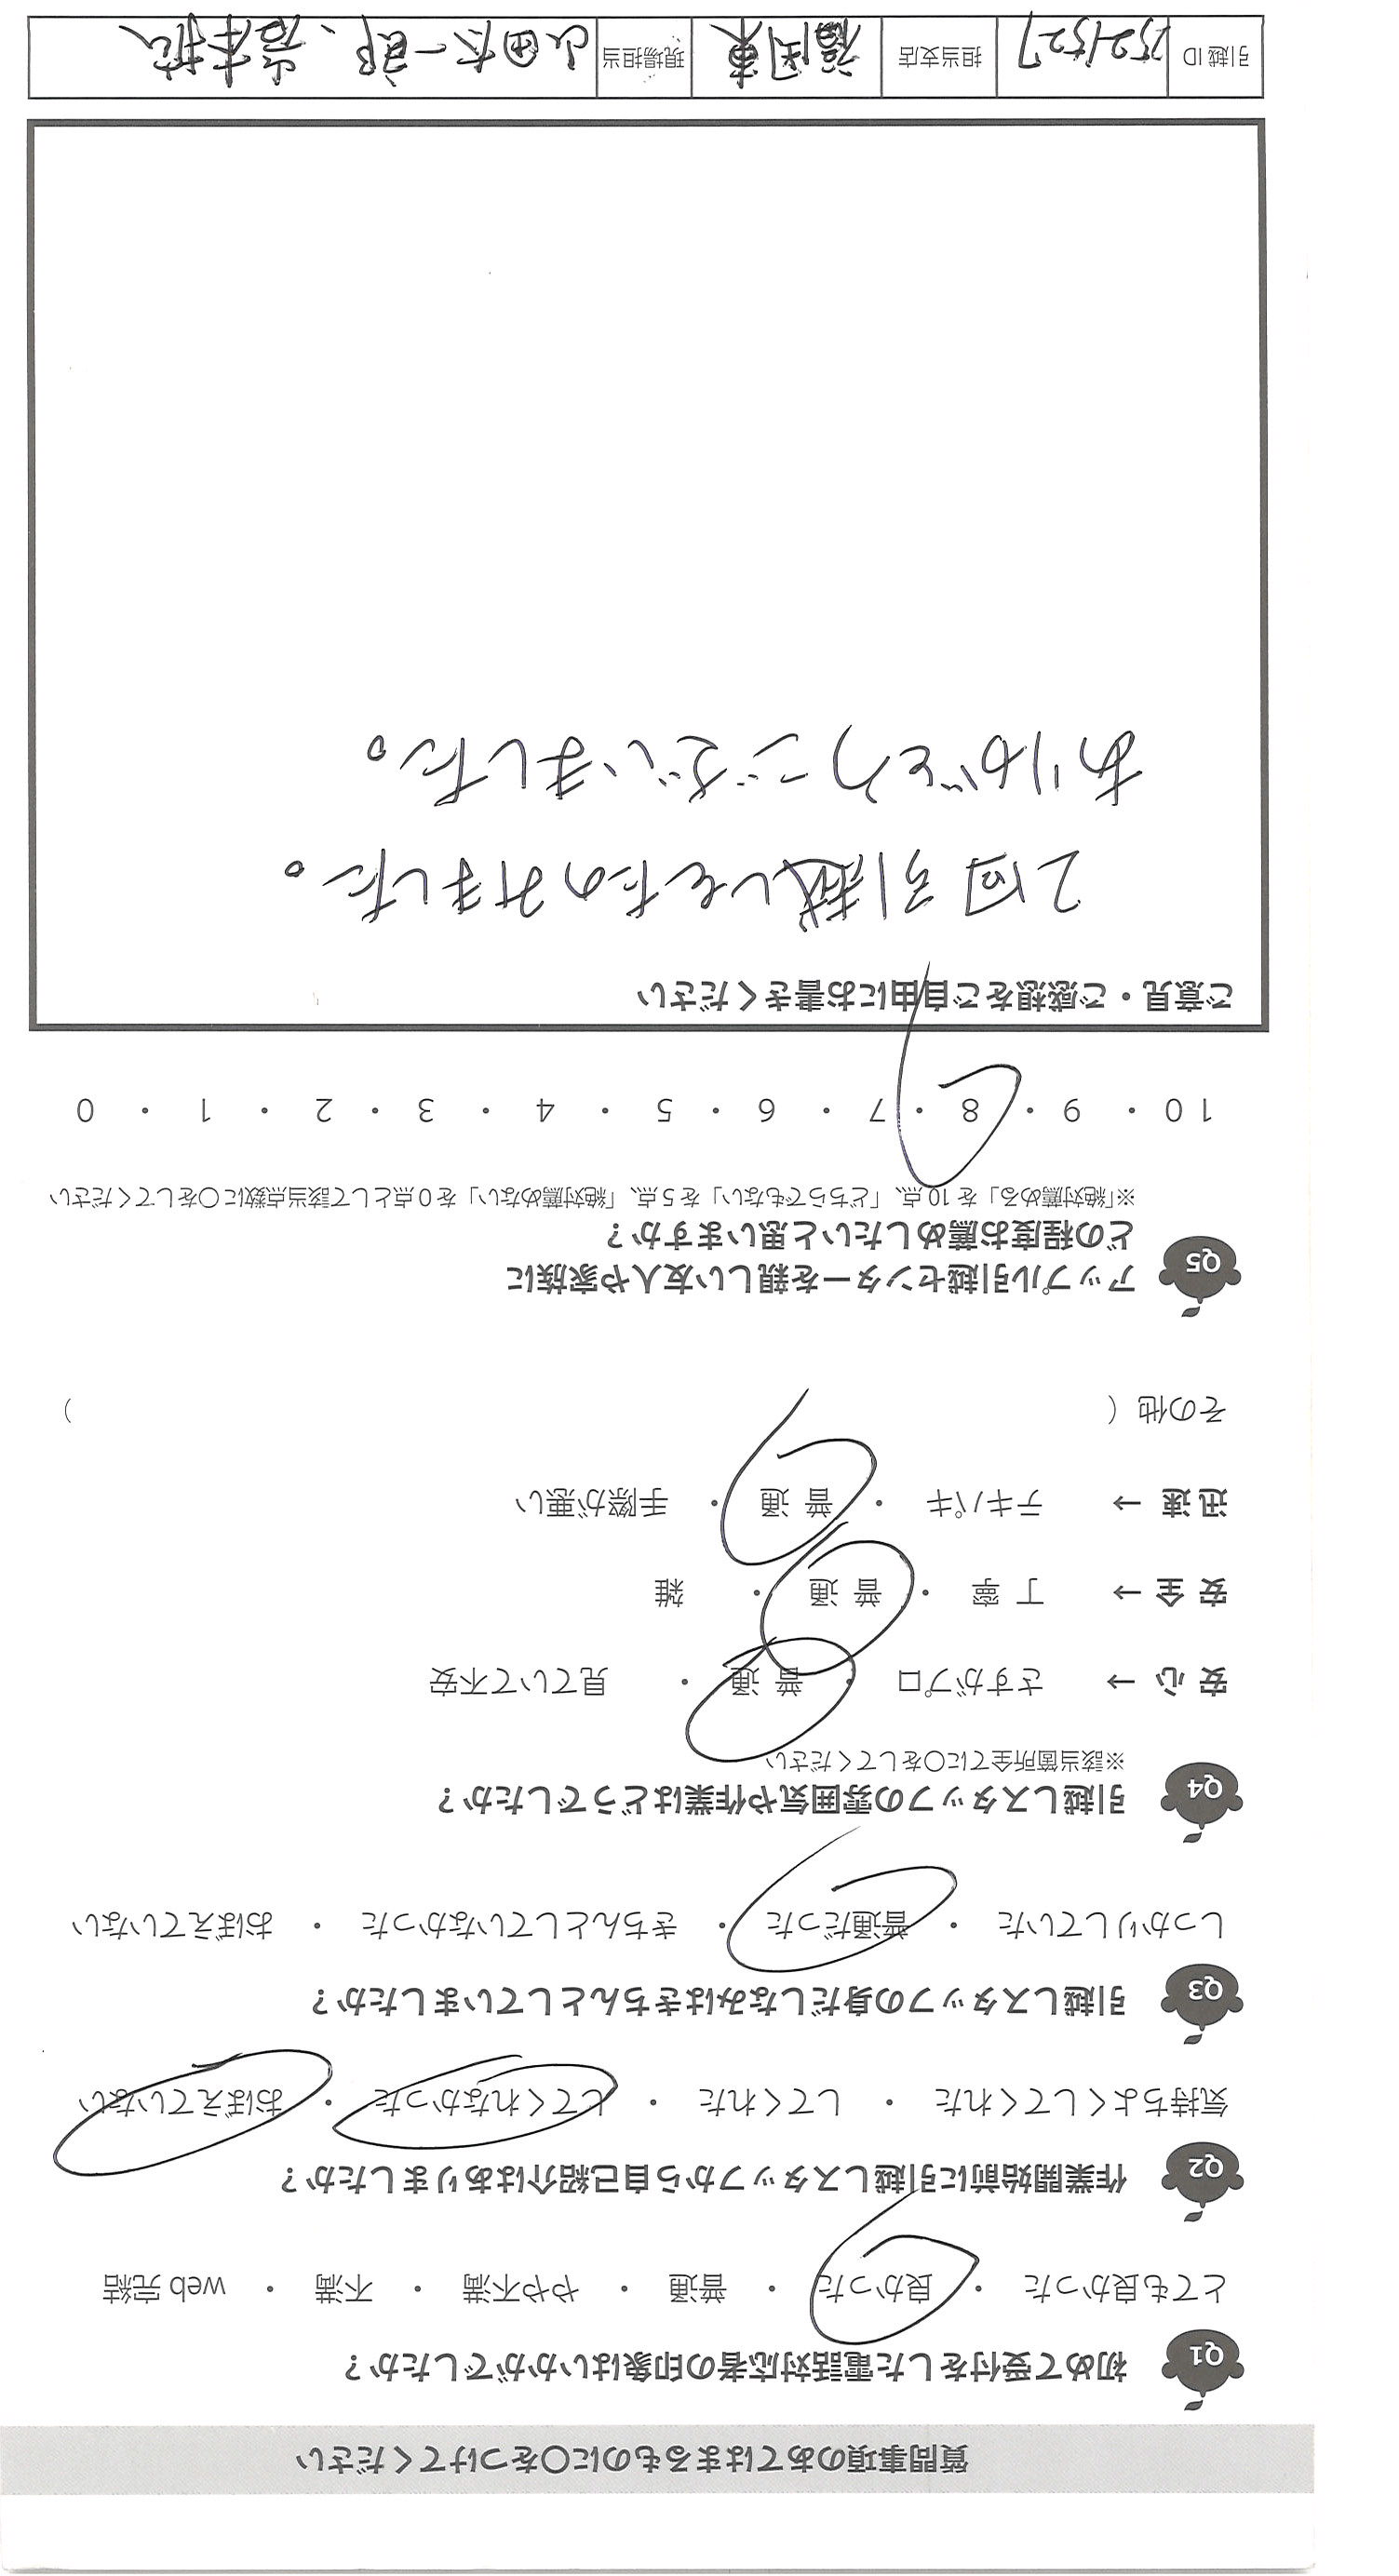 質問事項のあてはまるものに○をつけてください
Q1 初めて受付をした電話対応者の印象はいかがでしたか？
とても良かった ・ 良かった ・ 普通 ・ やや不満 ・ 不満 ・ web 完結
Q2 作業開始前に引越しスタッフから自己紹介はありましたか？
気持ちよくしてくれた ・ してくれた ・ してくれなかった ・ おぼえていない
Q3 引越しスタッフの身だしなみはきちんとしていましたか？
しっかりしていた ・ 普通だった ・ きちんとしていなかった ・ おぼえていない
Q4 引越しスタッフの雰囲気や作業はどうでしたか？
※該当箇所全てに○をしてください
安 心 → さすがプロ ・ 普 通 ・ 見ていて不安
安 全 → 丁 寧 ・ 普 通 ・ 雑
迅 速 → テキパキ ・ 普 通 ・ 手際が悪い
その他 （ ）
Q5 アップル引越センターを親しい友人や家族に
どの程度お薦めしたいと思いますか？
※「絶対薦める」を 10 点、「どちらでもない」を 5 点、「絶対薦めない」を 0 点として該当点数に○をしてください
10 ・ 9 ・ 8 ・ 7 ・ 6 ・ 5 ・ 4 ・ 3 ・ 2 ・ 1 ・ 0
ご意見・ご感想をご自由にお書きください
2回引越しをたのみました。
ありがとうございました。
引越 ID 2521527 担当支店 福岡東 現場担当 山田太一郎、岩本拡